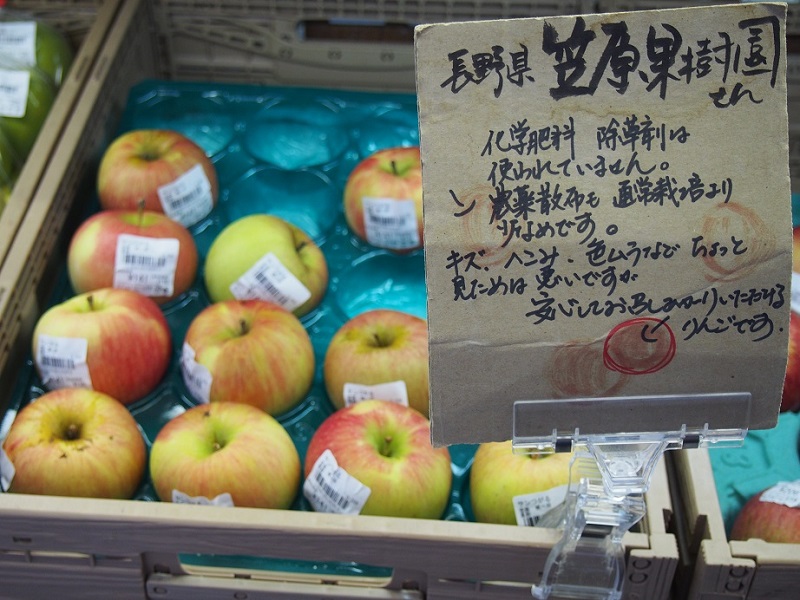 長野県 笠原果樹園
さん
化学肥料 除草剤は
使われていません。
減薬散布も 通常栽培より
少なめです。
キズ、へこみ、色ムラなど ちょっと
見ためは 悪いですが
安心してお召しあがりいただける
りんごです。